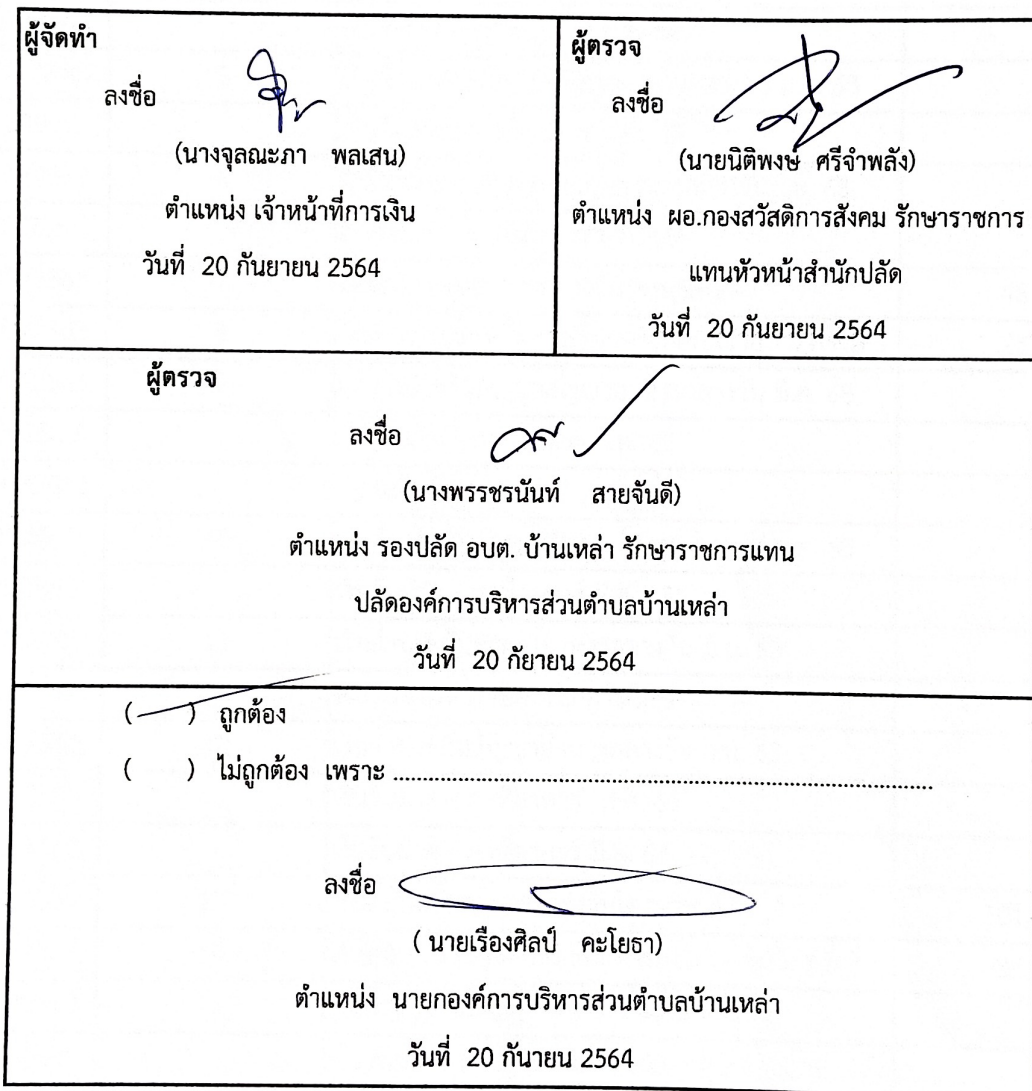 ผู้จัดทำ
ลงชื่อ
(นางจุลณะภา พลเสน)
ตำแหน่ง เจ้าหน้าที่การเงิน
วันที่ 20 กันยายน 2564
ผู้ตรวจ
ลงชื่อ
(นายนิติพงษ์ ศรีจำพลัง)
ตำแหน่ง ผอ.กองสวัสดิการสังคม รักษาราชการ
แทนหัวหน้าสำนักปลัด
วันที่ 20 กันยายน 2564
ผู้ตรวจ
ลงชื่อ
(นางพรรชรนันท์ สายจันดี)
ตำแหน่ง รองปลัด อบต. บ้านเหล่า รักษาราชการแทน
ปลัดองค์การบริหารส่วนตำบลบ้านเหล่า
วันที่ 20 กัยายน 2564
( ) ถูกต้อง
( ) ไม่ถูกต้อง เพราะ ..........................................................................................
ลงชื่อ
( นายเรืองศิลป์ คะโยธา)
ตำแหน่ง นายกองค์การบริหารส่วนตำบลบ้านเหล่า
วันที่ 20 กันายน 2564